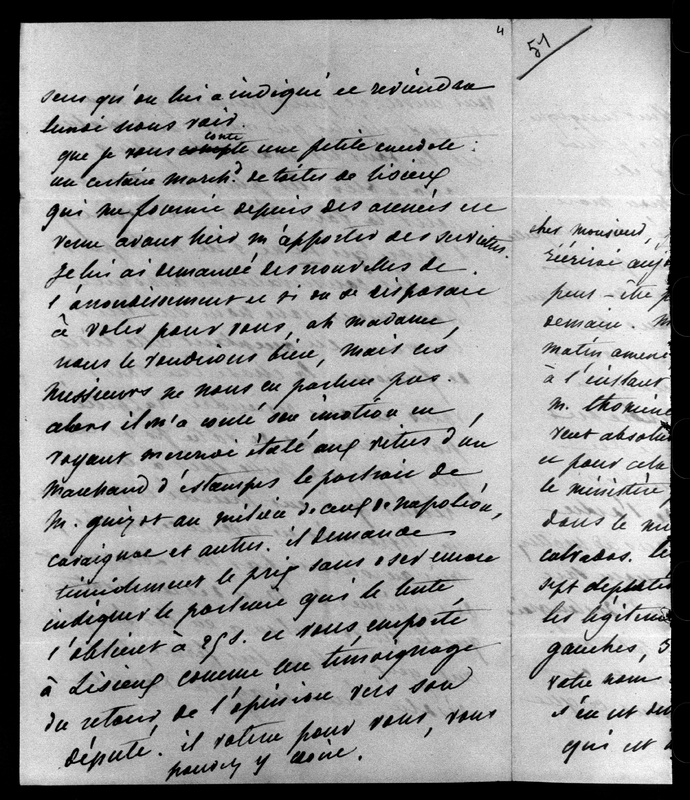 4
51
sens qu'on lui a indiqué et reviendra
lundi nous voir.
que je vous conte une petite anecdote :
un certain march.d de toiles de Lisieux
qui me fournit depuis des années est
venu avant hier m'apporter des serviettes.
je lui ai demandé des nouvelles de
l'arrondissement et si on se disposait
à voter pour vous, ah madame,
nous le voudrions bien, mais ces
messieurs ne nous en parlent pas.
alors il m'a conté son émotion en
voyant mercredi étalé aux vitres d'un
marchand d'estampes le portrait de
m. guizot au milieu de ceux de napoléon,
cavaignac et autres. il demande
timidement le prix sans oser encore
indiquer le portrait qui le tente,
l'obtient à 25 s. et vous emporte
à Lisieux comme un témoignage
du retour de l'opinion vers son
député. il votera pour vous, vous
pouvez y croire.
cher monsieur, j
peut-être p
demain. M
matin amen
à l'instant
m. thomine
veut absolu
et pour cela
le ministère
dans le m
calvados. le
sept députa
les légitim
gauches, 3
votre nom
s'en est
qui est